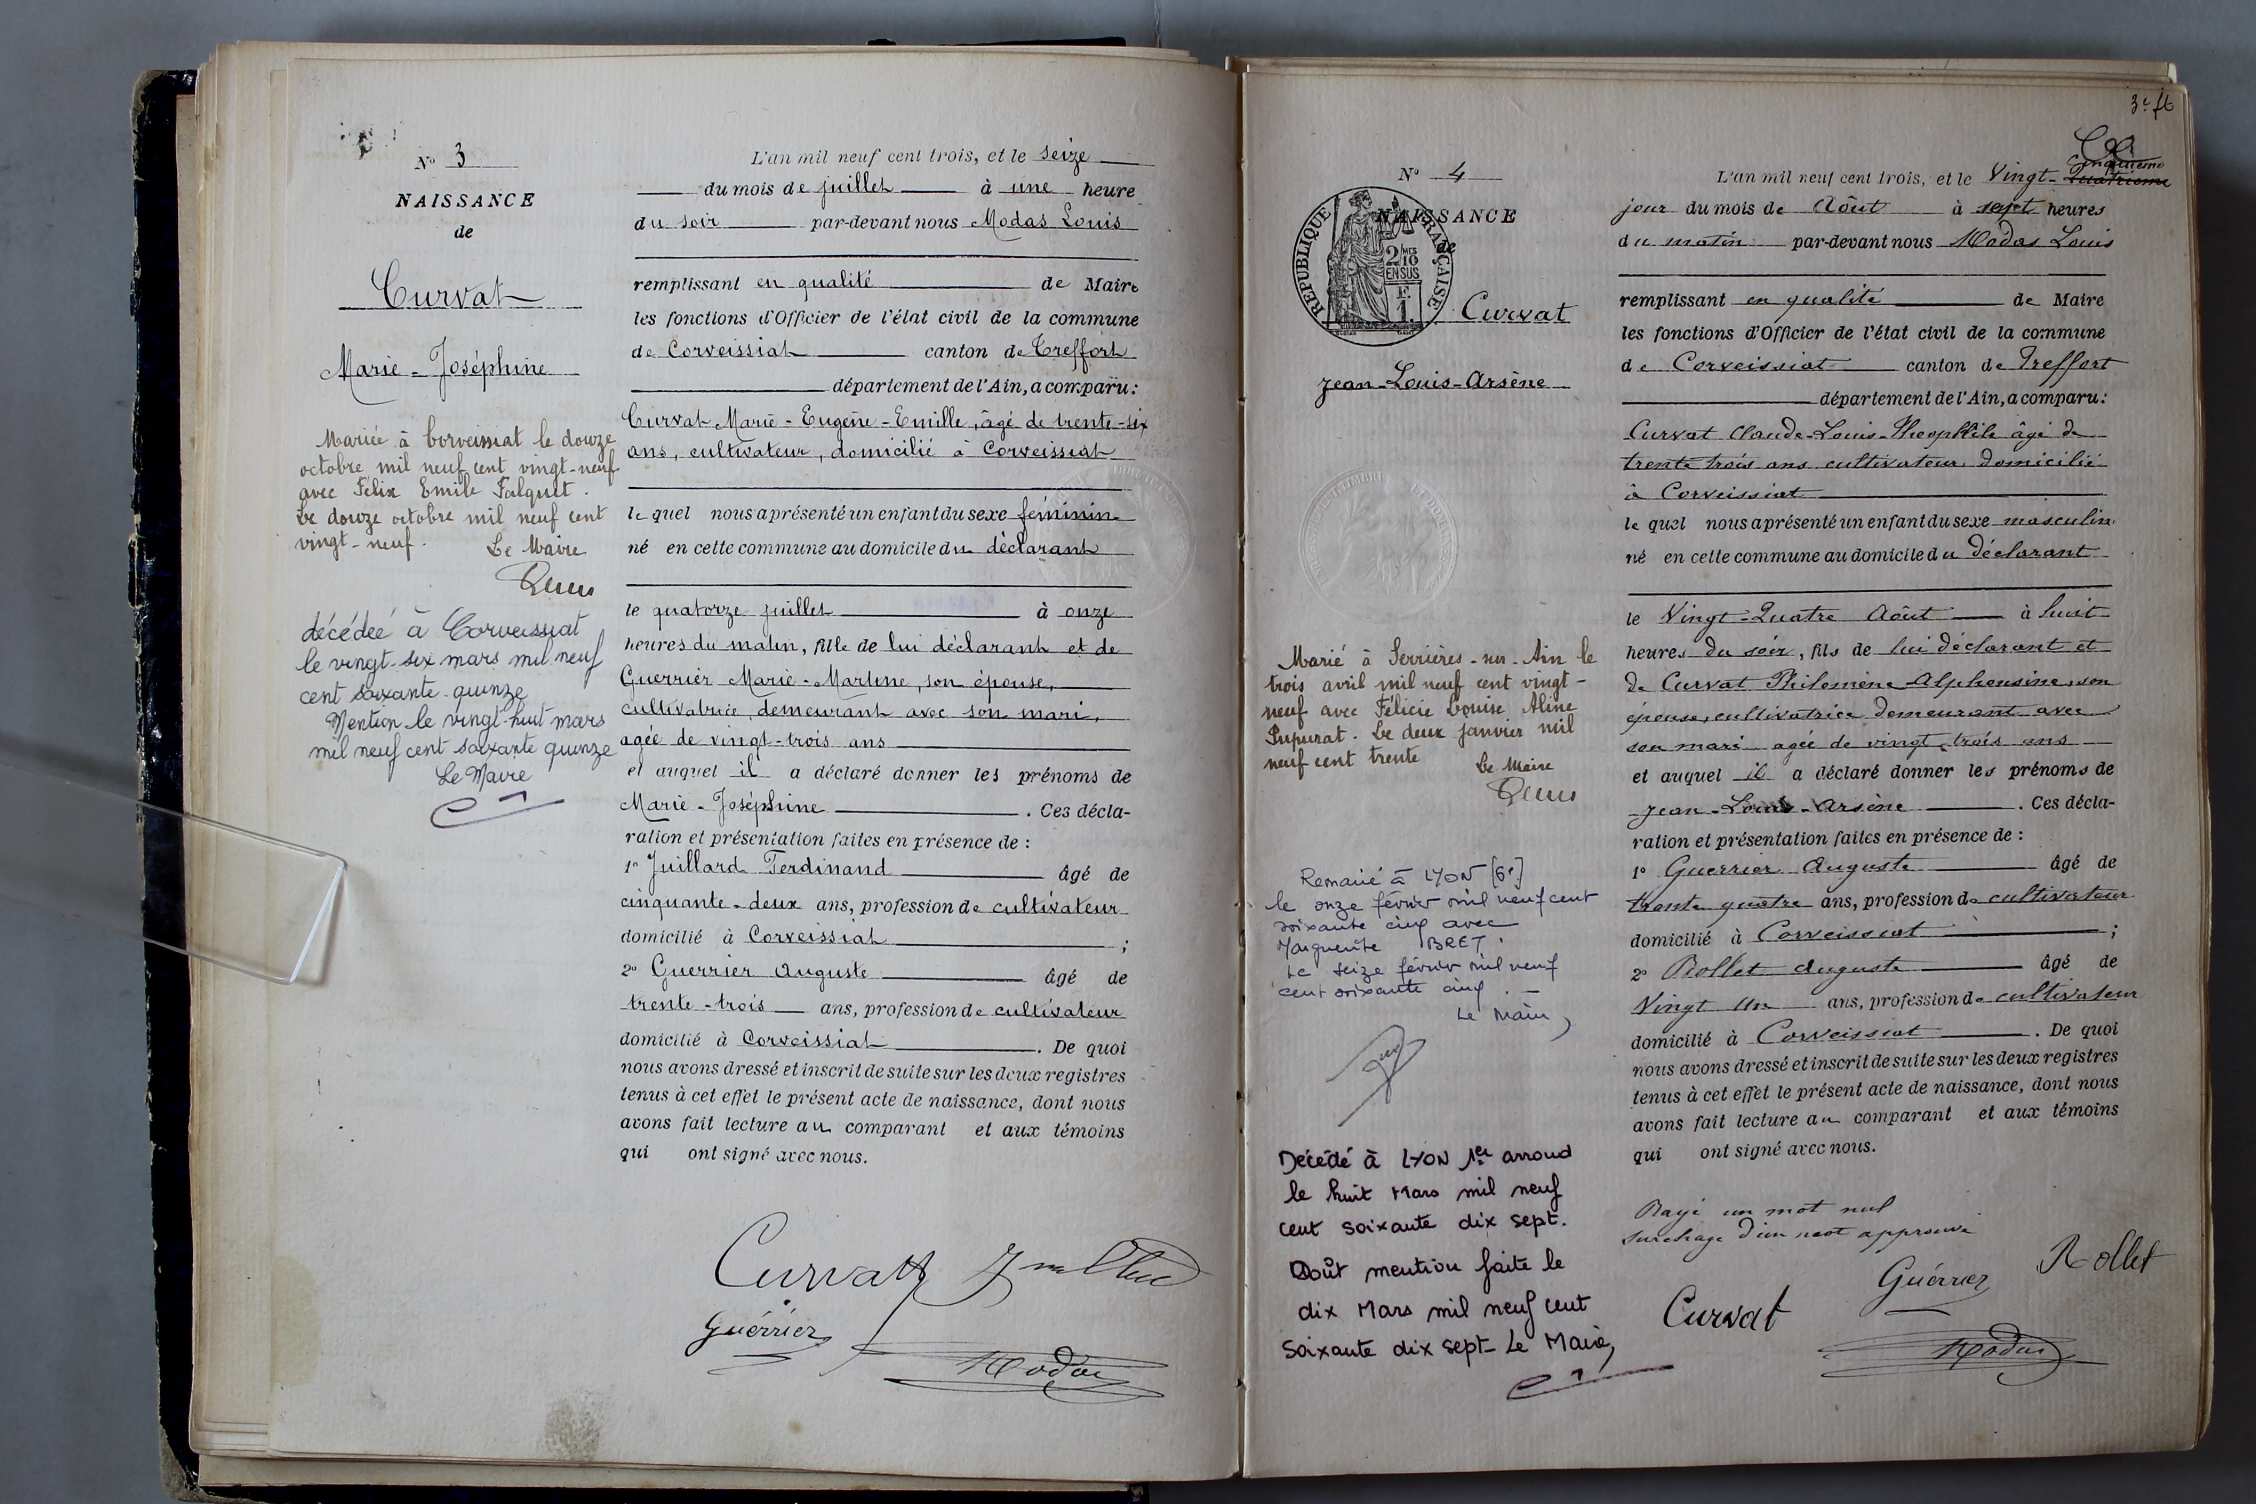 No 3
NAISSANCE
de
Curvat
Marie-Joséphine
Mariée à Corveissiat le douze
octobre mil neuf cent vingt-neuf
avec Félix Emile Falquet.
Le douze octobre mil neuf cent
vingt-neuf.
Le Maire
décédée à Corveissiat
le vingt-six mars mil neuf
cent soixante-quinze
Mention le vingt-huit mars
mil neuf cent soixante quinze
Le Maire
L'an mil neuf cent trois, et le seize
du mois de juillet à une heure
du soir par-devant nous Modas Louis
remplissant en qualité de Maire
les fonctions d'Officier de l'état civil de la commune
de Corveissiat canton de Treffort
département de l'Ain, a comparu:
Curvat Marie-Eugène-Emille, âgé de trente-six
ans, cultivateur, domicilié à Corveissiat
le quel nous a présenté un enfant du sexe féminin
né en cette commune au domicile du déclarant
le quatorze juillet à onze
heures du matin, fille de lui déclarant et de
Guerrier Marie-Martine, son épouse,
cultivatrice, demeurant avec son mari,
agée de vingt-trois ans
et auquel il a déclaré donner les prénoms de
Marie-Joséphine . Ces décla-
ration et présentation faites en présence de :
1o Juillard Ferdinand âgé de
cinquante-deux ans, profession de cultivateur
domicilié à Corveissiat ;
2o Guerrier Auguste âgé de
trente-trois ans, profession de cultivateur
domicilié à Corveissiat . De quoi
nous avons dressé et inscrit de suite sur les deux registres
tenus à cet effet le présent acte de naissance, dont nous
avons fait lecture au comparant et aux témoins
qui ont signé avec nous.
Curvat
Guérrier
Modas
No 4
NAISSANCE
de
RÉPUBLIQUE FRANÇAISE
2/10
EN SUS
F.
1.
Curvat
Jean-Louis-Arsène
Marié à Serrières-sur-Ain le
trois avril mil neuf cent vingt-
neuf avec Félicie Louise Aline
Pupunat. Le deux janvier mil
neuf cent trente
Le Maire
Remarié à LYON [6e]
le onze février mil neuf cent
soixante cinq avec
Marguerite BRET.
Le seize février mil neuf
cent soixante cinq.
Le Maire,
Décédé à LYON 1er arrond
le huit Mars mil neuf
cent soixante dix sept.
Dont mention faite le
dix Mars mil neuf cent
soixante dix sept - Le Maire,
L'an mil neuf cent trois, et le Vingt-
Cinquième
Quatrieme
jour du mois de Août à sept heures
du matin par-devant nous Modas Louis
remplissant en qualité de Maire
les fonctions d'Officier de l'état civil de la commune
de Corveissiat canton de Treffort
département de l'Ain, a comparu:
Curvat Claude-Louis-Théophile âgé de
trente trois ans cultivateur domicilié
à Corveissiat
le quel nous a présenté un enfant du sexe masculin
né en cette commune au domicile du déclarant
le Vingt-Quatre Août à huit
heures du soir, fils de lui déclarant et
de Curvat Philomène-Alphonsine, son
épouse, cultivatrice demeurant avec
son mari agée de vingt-trois ans
et auquel il a déclaré donner les prénoms de
Jean-Louis-Arsène . Ces décla-
ration et présentation faites en présence de :
1o Guerrier Auguste âgé de
trente quatre ans, profession de cultivateur
domicilié à Corveissiat ;
2o Rollet Auguste âgé de
Vingt un ans, profession de cultivateur
domicilié à Corveissiat . De quoi
nous avons dressé et inscrit de suite sur les deux registres
tenus à cet effet le présent acte de naissance, dont nous
avons fait lecture au comparant et aux témoins
qui ont signé avec nous.
Rayé un mot nul
surchage d'un mot approuvé
Rollet
Guérrier
Curvat
Modas